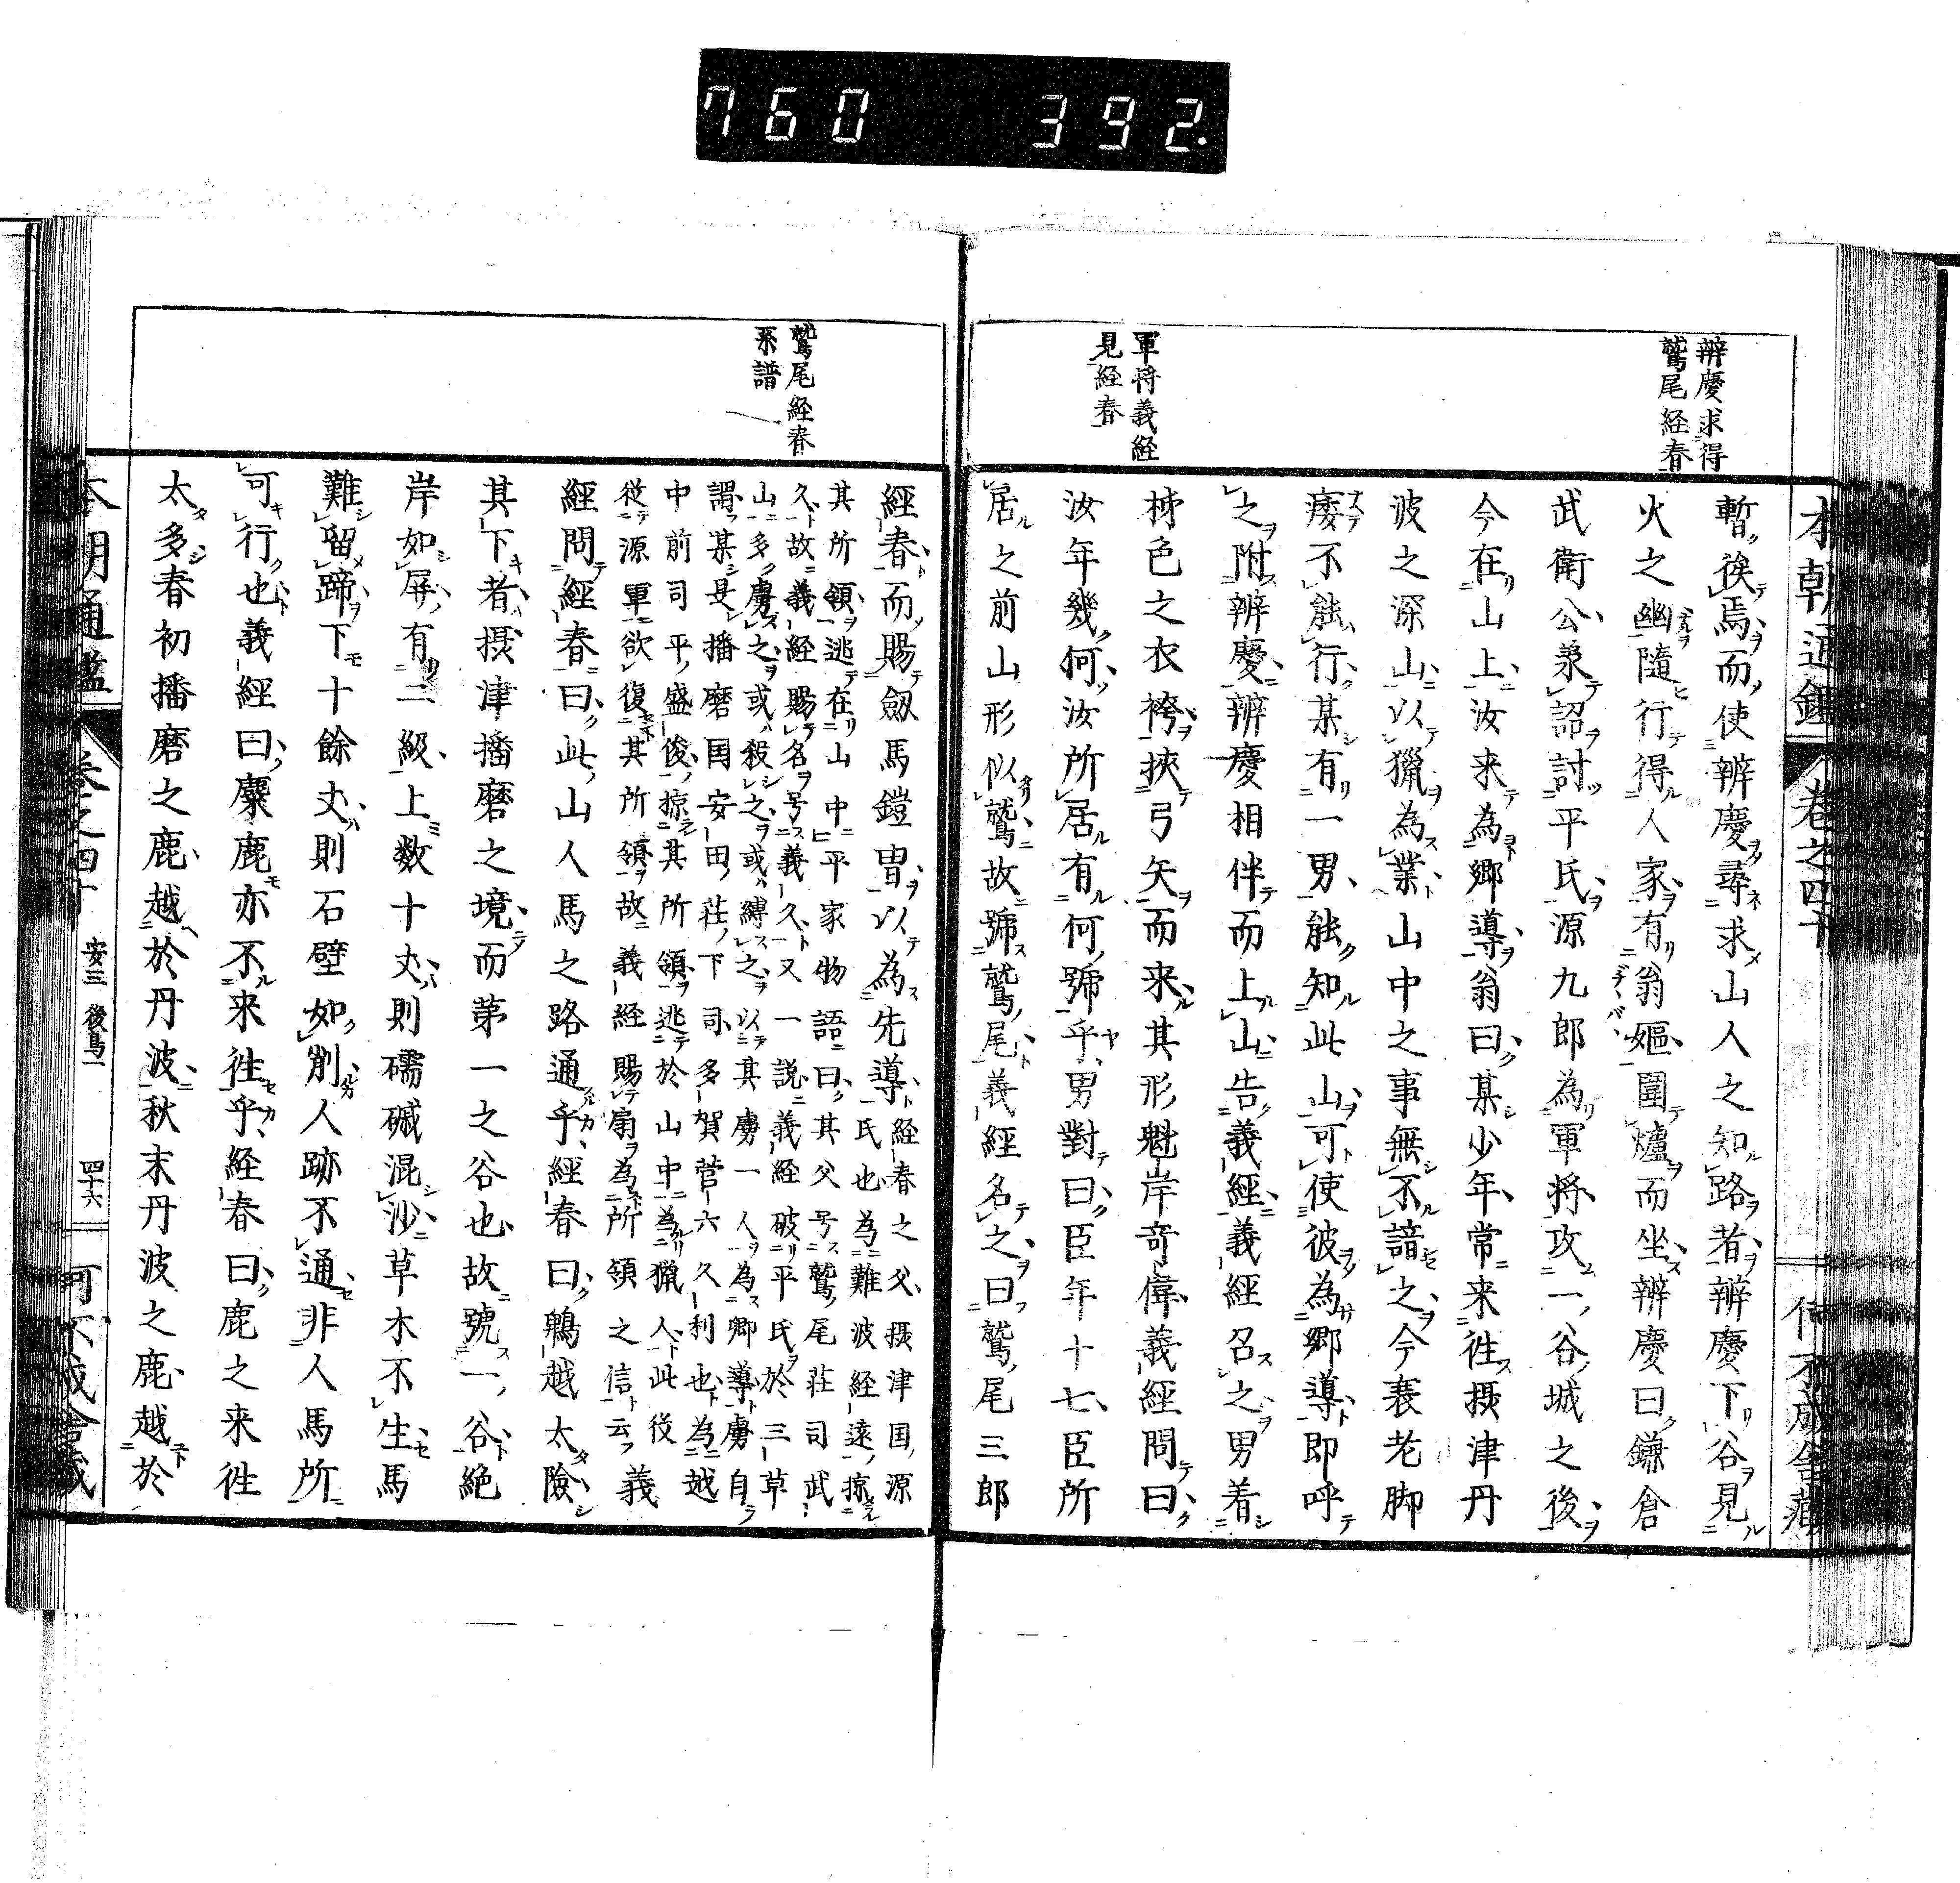 760 392
辨慶求得
鷲尾経春
軍将義経
見経春
本朝通鑑 卷之四十
暫俟焉而使辨慶尋求山人之知路者辨慶下谷見
火之幽隨行得人家有翁嫗圍爐而坐辨慶曰鎌倉
武衛公承詔討平氏源九郎為軍将攻一谷城之後
今在山上汝来為郷導翁曰某少年常来往摂津丹
波之深山以獵為業山中之事無不諳之今衰老脚
痿不能行某有一男能知此山可使彼為郷導即呼
之附辨慶辨慶相伴而上山告義經義經召之男着
柹色之衣袴挾弓矢而来其形魁岸奇偉義經問曰
汝年幾何汝所居有何號乎男對曰臣年十七臣所
居之前山形似鷲故號鷲尾義經名之曰鷲尾三郎
鷲尾経春
系譜
經春而賜劔馬鎧冑以為先導経春之父摂津国源
氏也為難波経遠掠
其所領逃在山中平家物語曰其父号鷲尾莊司武
久故義経賜名号義久又一説義経破平氏於三草
山多虜之或殺之或縛之以其虜一人為郷導虜自
謂某是播磨国安田莊下司多賀菅六久利也為越
中前司平盛俊掠其所領逃於山中為獵人此役
従源軍欲復其所領故義経賜扇為所領之信云義
經問經春曰此山人馬之路通乎經春曰鵯越太險
其下者摂津播磨之境而第一之谷也故號一谷絶
岸如屏有二級上数十丈則礝磩混沙草木不生馬
難留蹄下十餘丈則石壁如削人跡不通非人馬所
可行也義經曰麋鹿亦不来往乎經春曰鹿之来往
太多春初播磨之鹿越於丹波秋末丹波之鹿越於
本朝通鑑 卷之四十 安三 後鳥一 四十六